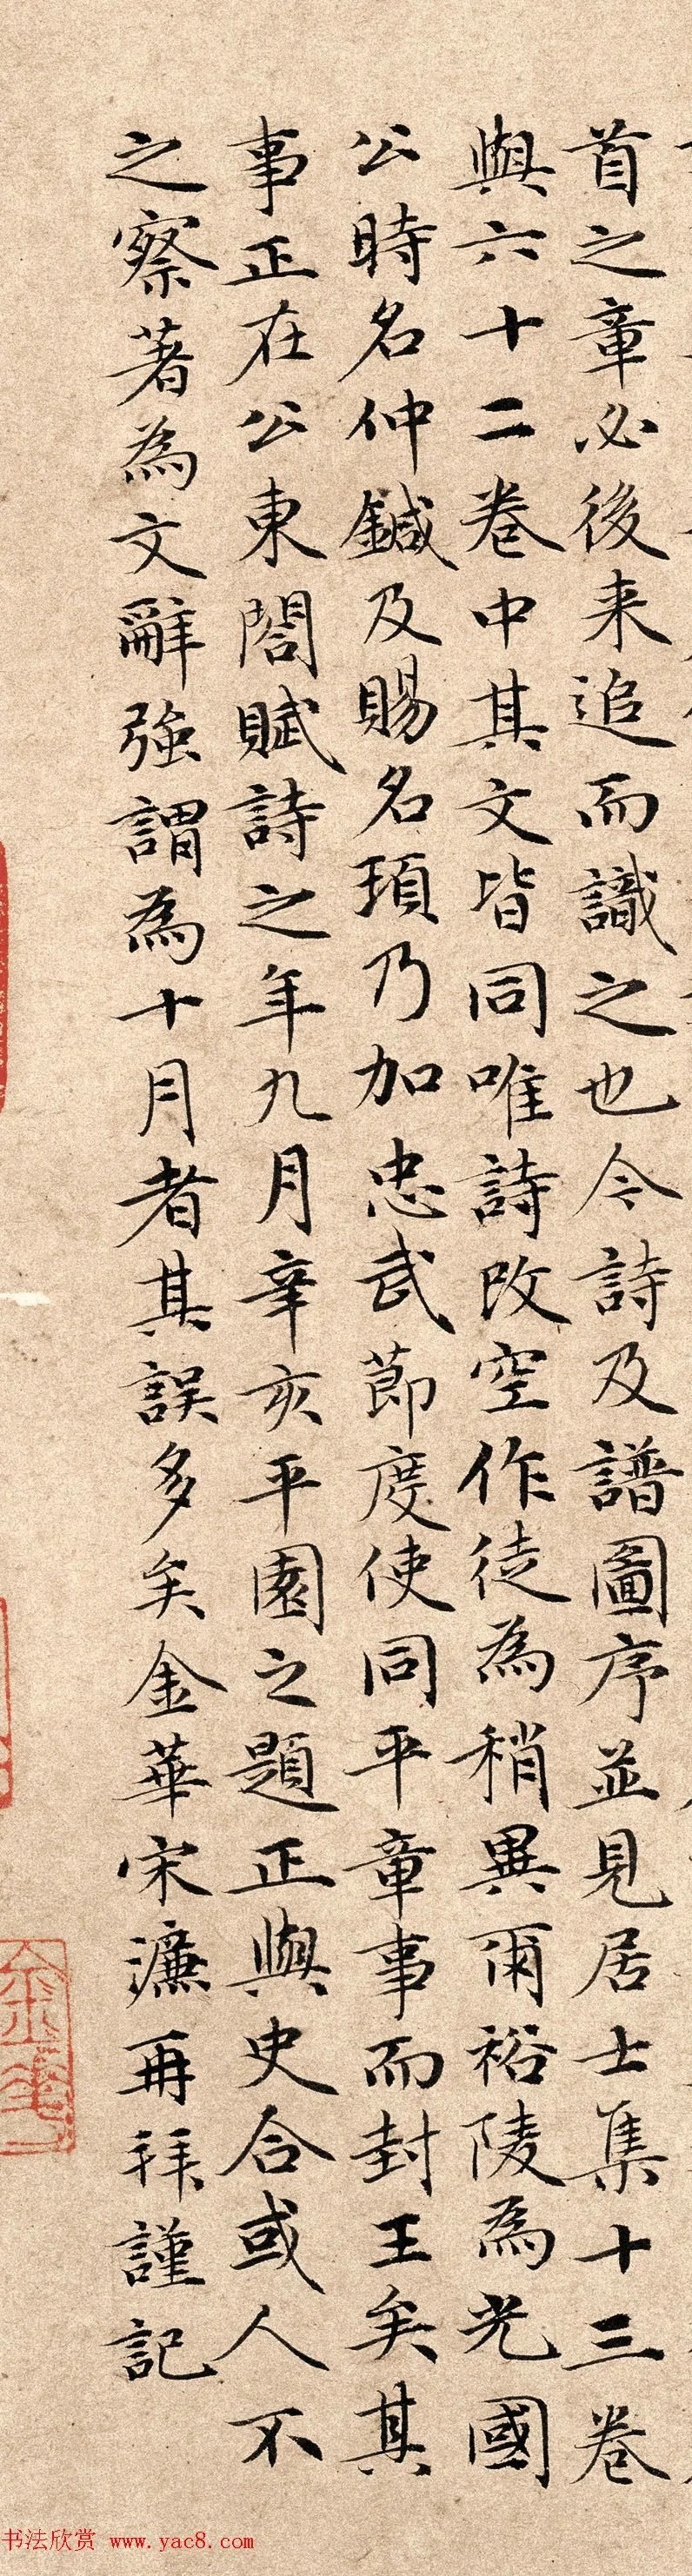 首之章必後来追而識之也今詩及譜圖序並見居士集十三卷
與六十二卷中其文皆同唯詩改空作徒為稍異爾裕陵為光國
公時名仲鍼及賜名頊乃加忠武節度使同平章事而封王矣其
事正在公東閤賦詩之年九月辛亥平園之題正與史合或人不
之察著為文辭強謂為十月者其誤多矣金華宋濂再拜謹記
金華
书法欣赏 www.yac8.com